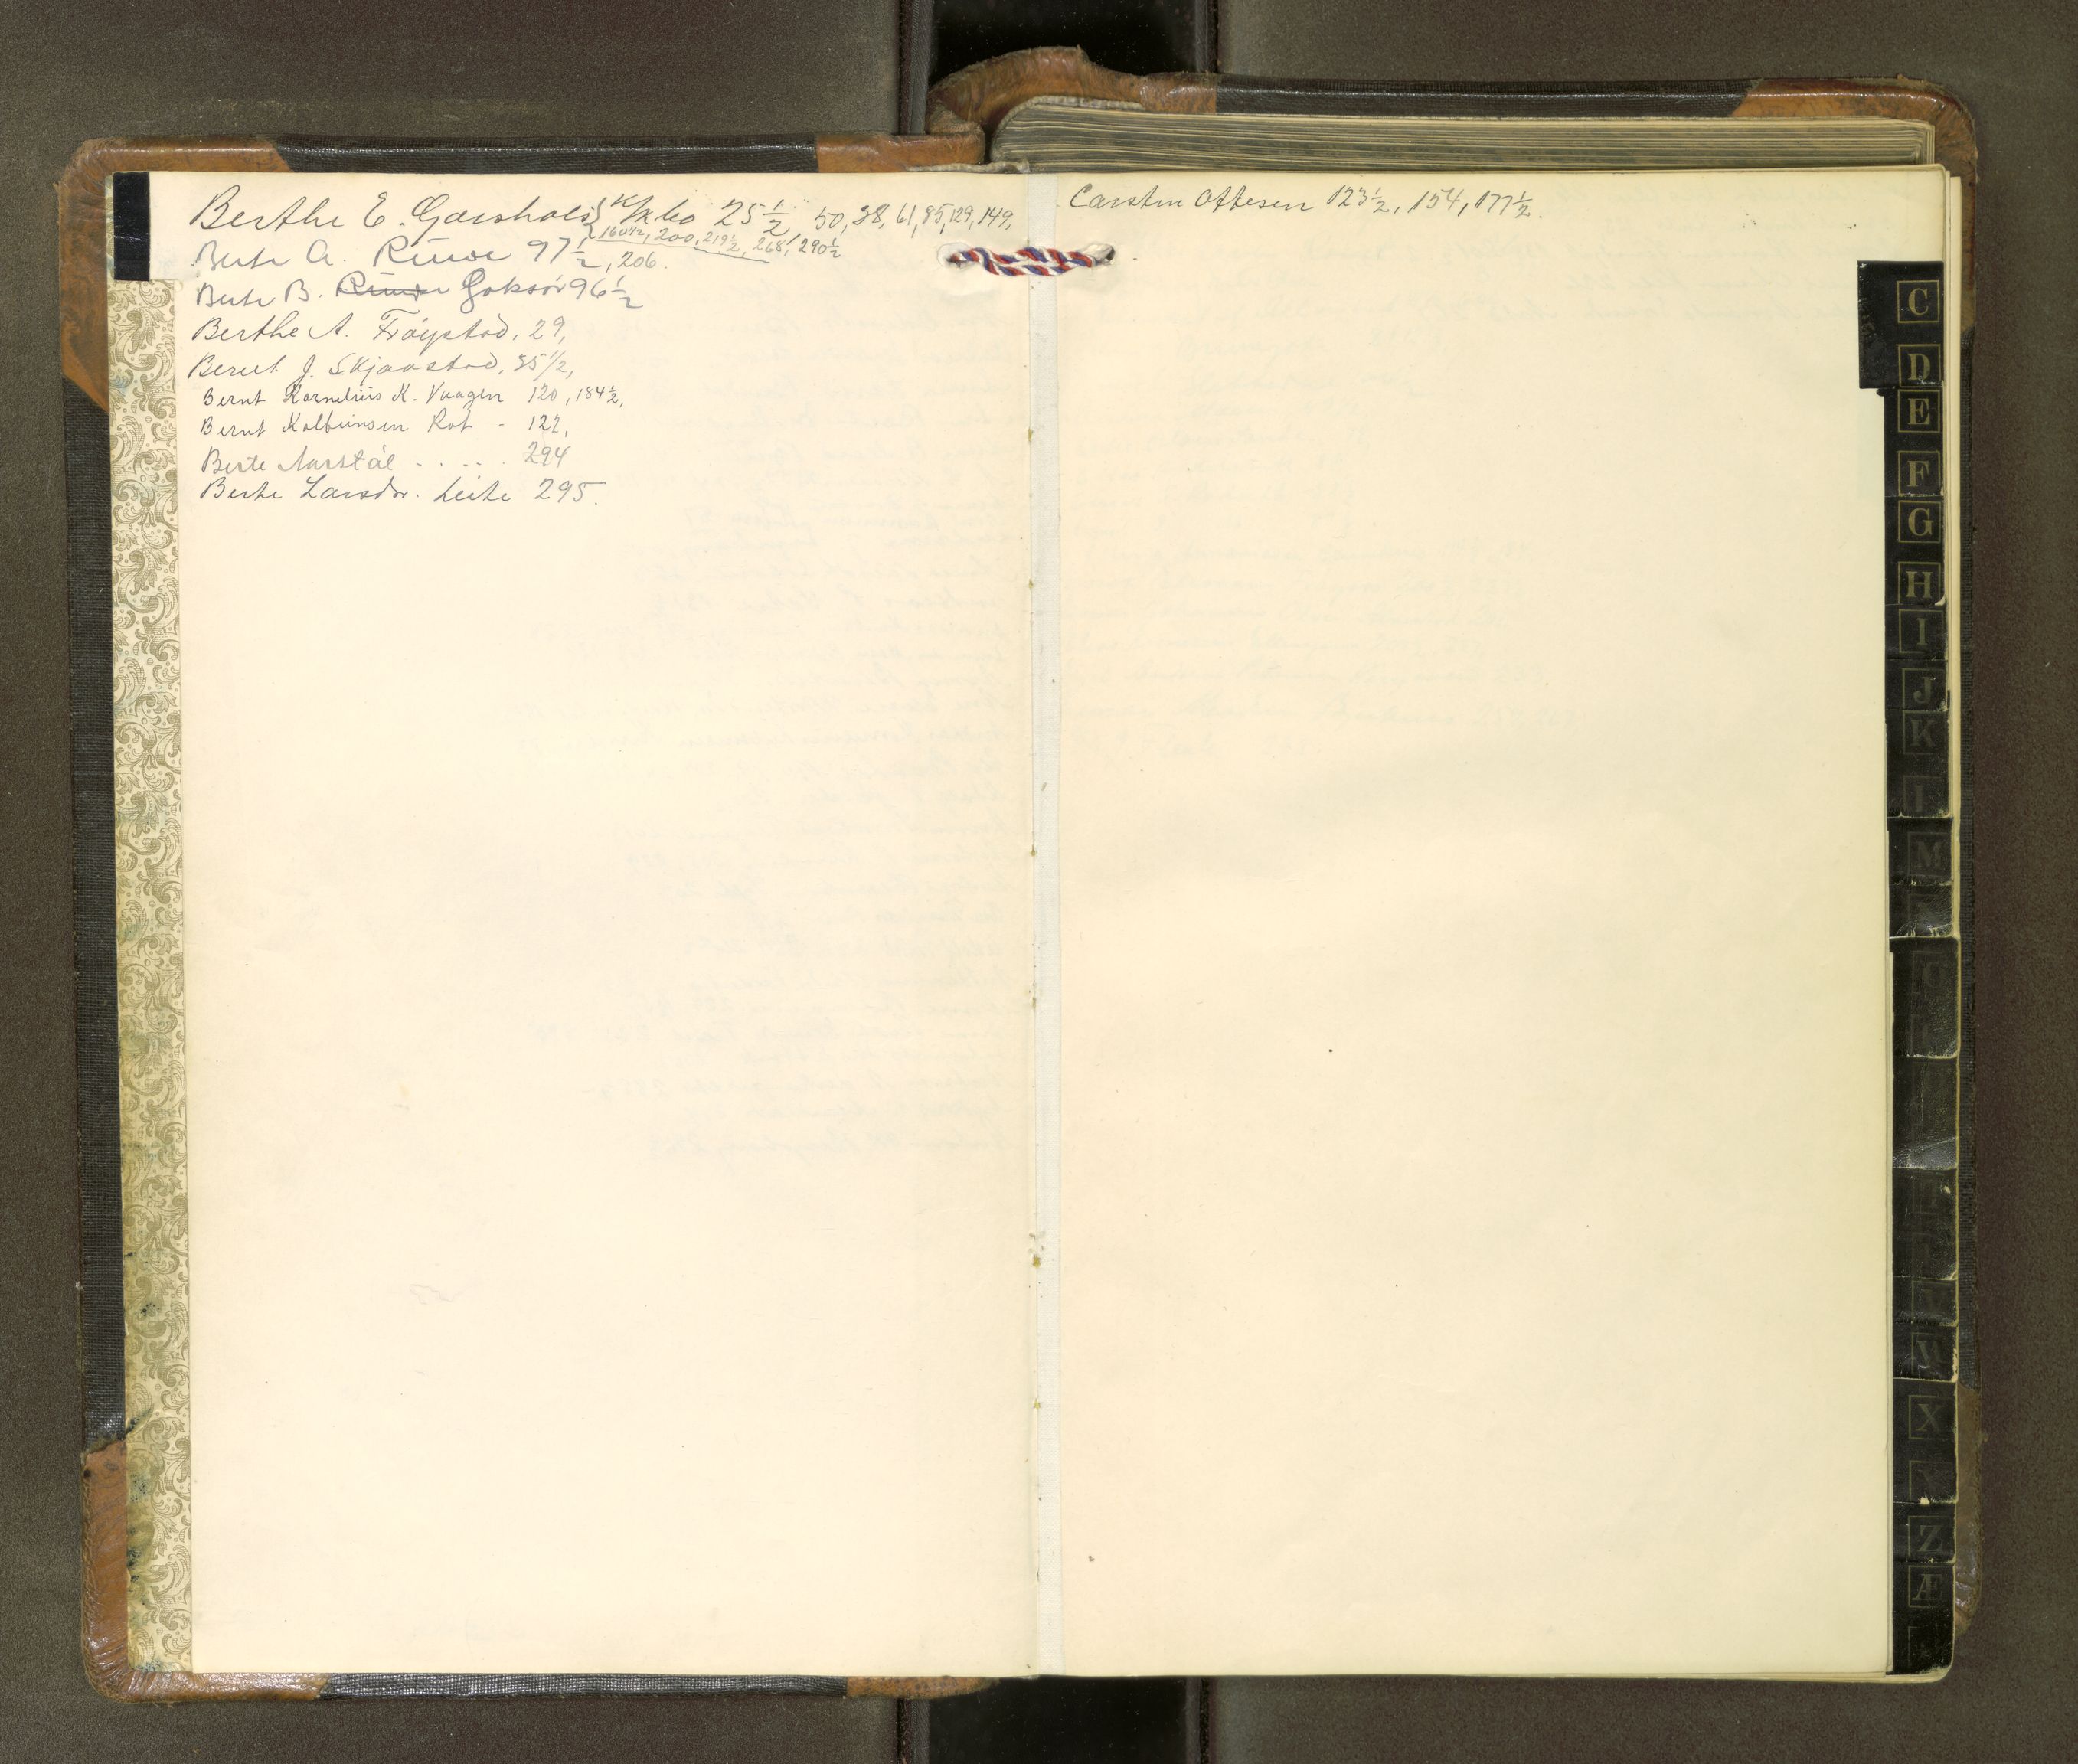 Berthe E. Garshols} K/K bo 25½ 50, 38, 61, 95, 129, 149,
160½, 200, 219½, 268, 290½
Berte A. Runde 97½, 206.
Berte B. Runde Goksör 96½
Berthe A. Fröystad, 29,
Berut J. Skjaastad, 35½,
Bernt Kornelius K. Vaagen 120, 184½,
Bernt Kolbeinsen Rot - 122,
Berte Aurstål - . . . . 294
Berte Larsdr. Leite 295.
Carsten Ottesen 123½, 154, 177½.
C
D
E
F
G
H
I
J
K
M
X
Z
Æ